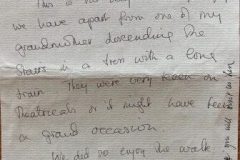 This is the only
we have apart from one of my
grandmother descending the
stairs in a dress with a long
train They were very keen on
theatricals or it might have been
a grand occasion
We did so enjoy the walk
you will